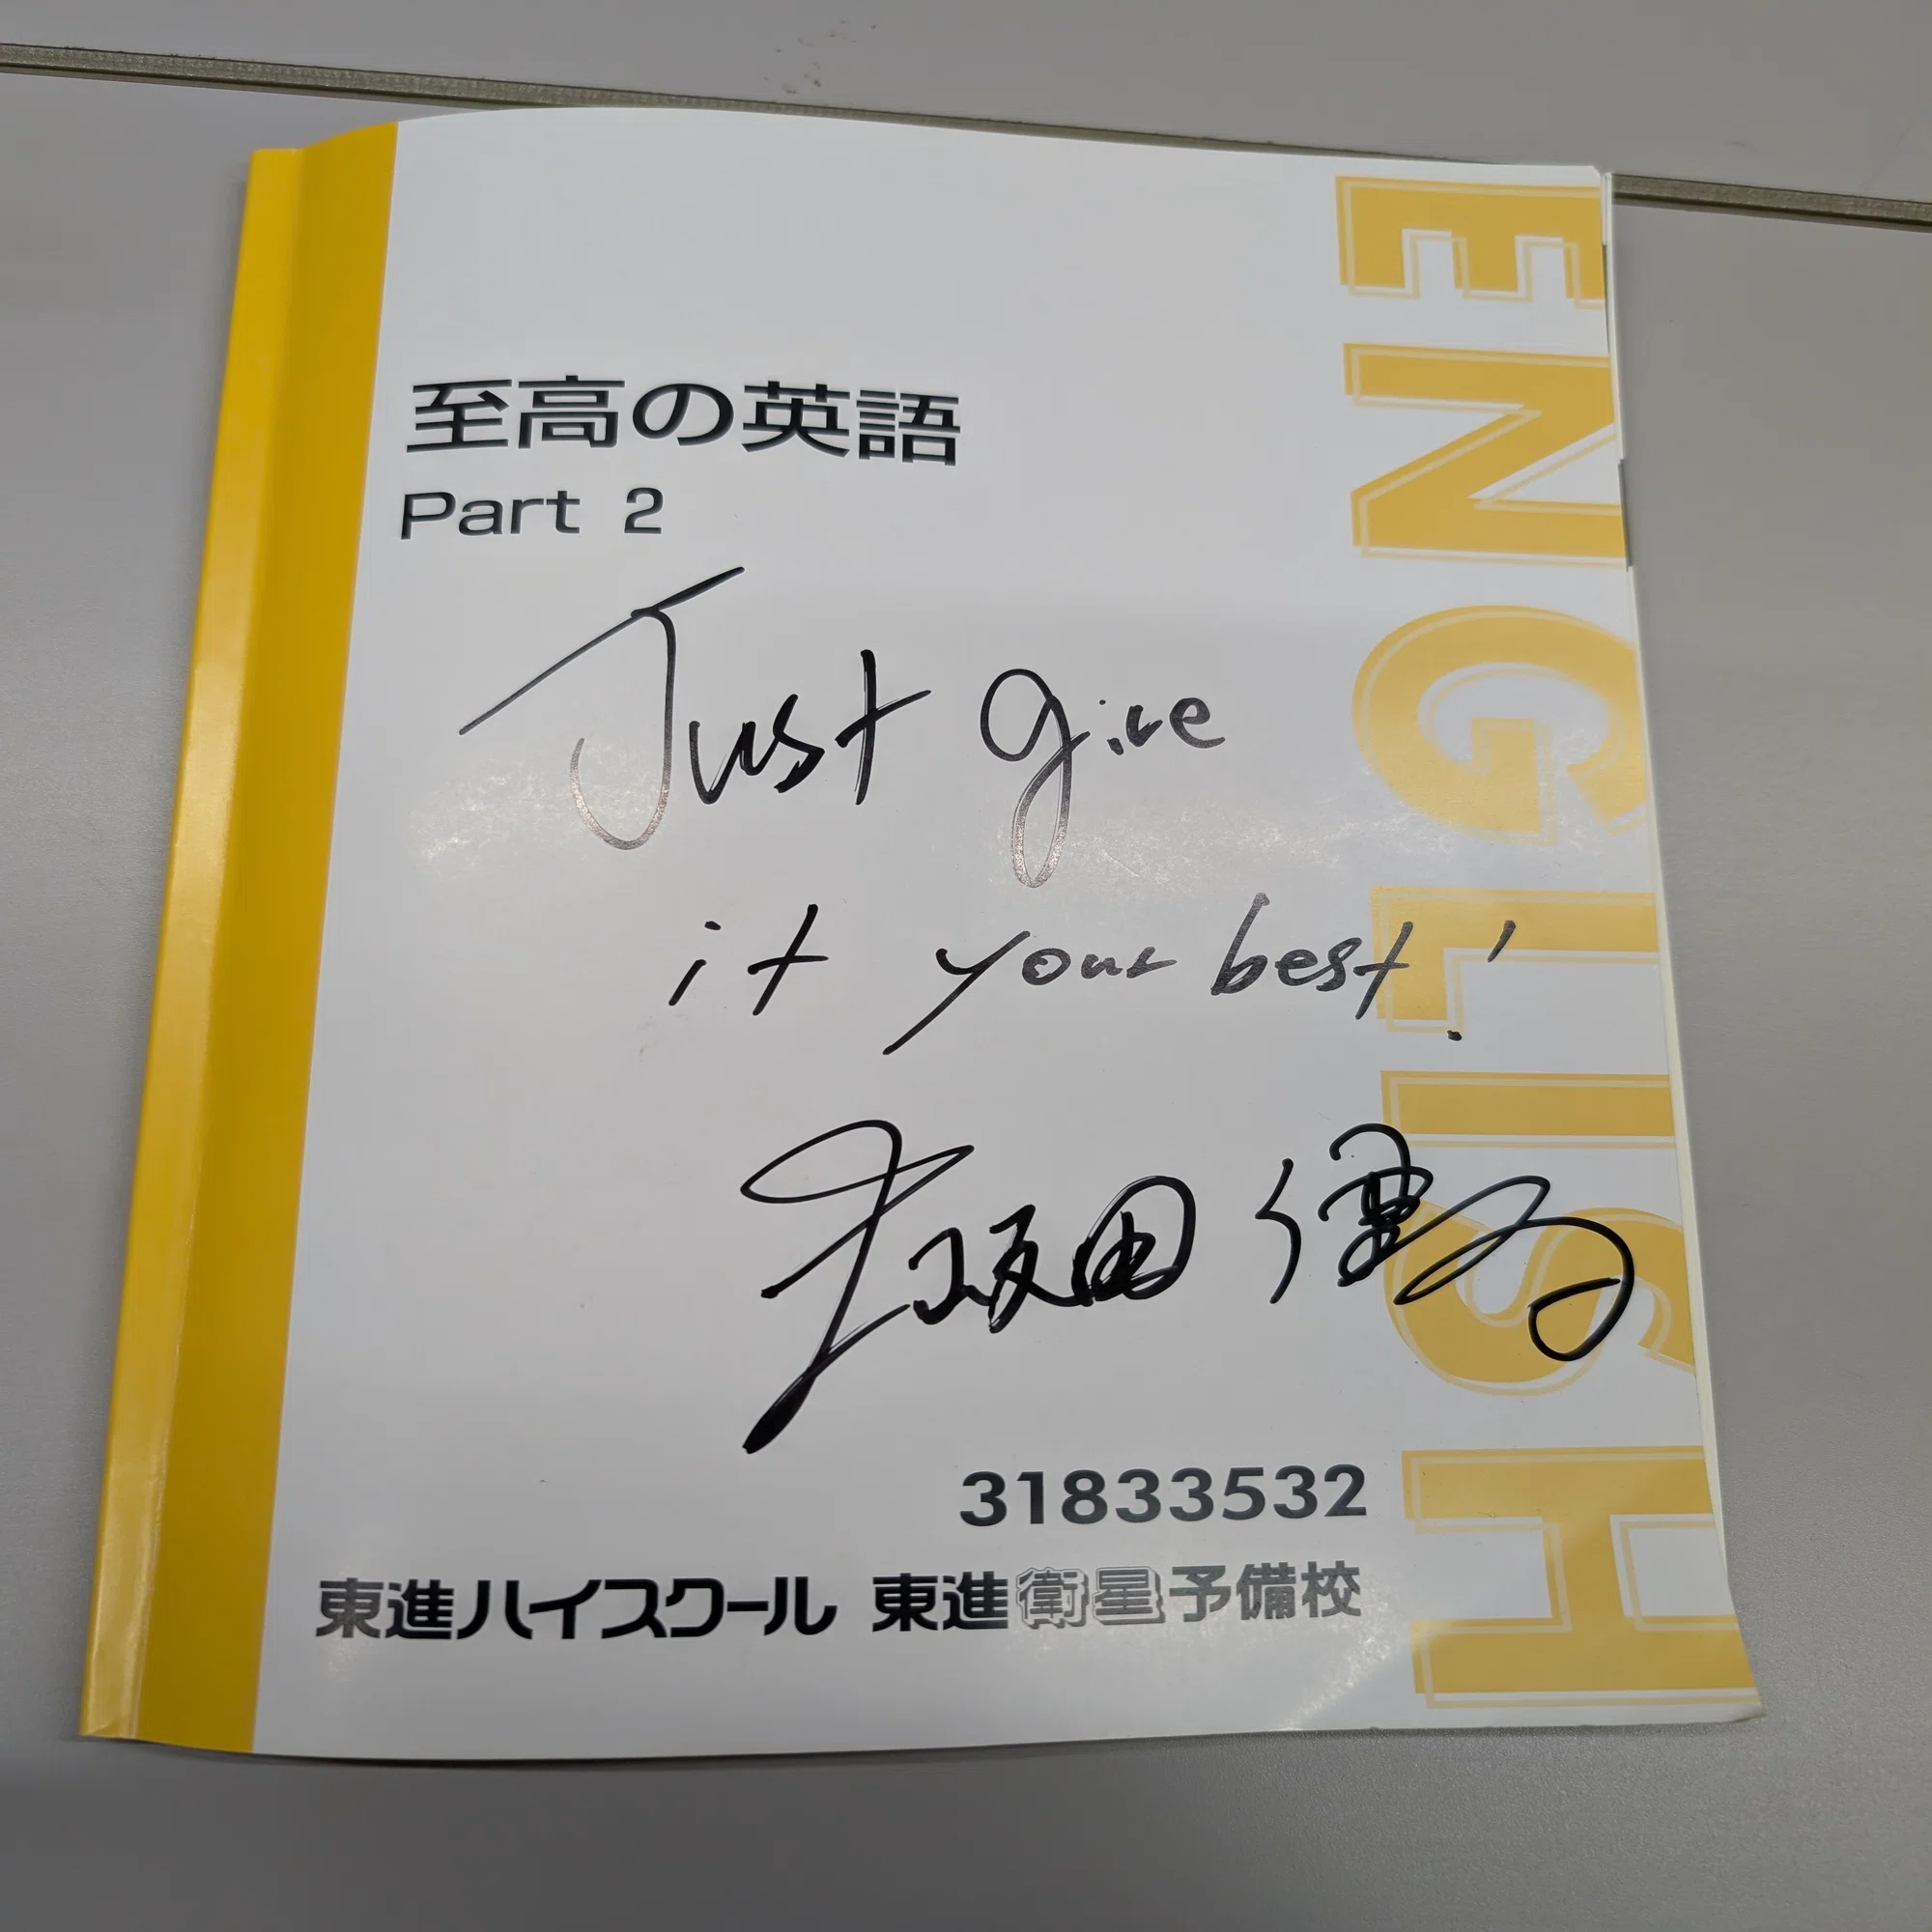 至高の英語
Part 2
Just give
it your best!
31833532
東進ハイスクール 東進衛星予備校
ENGLISH